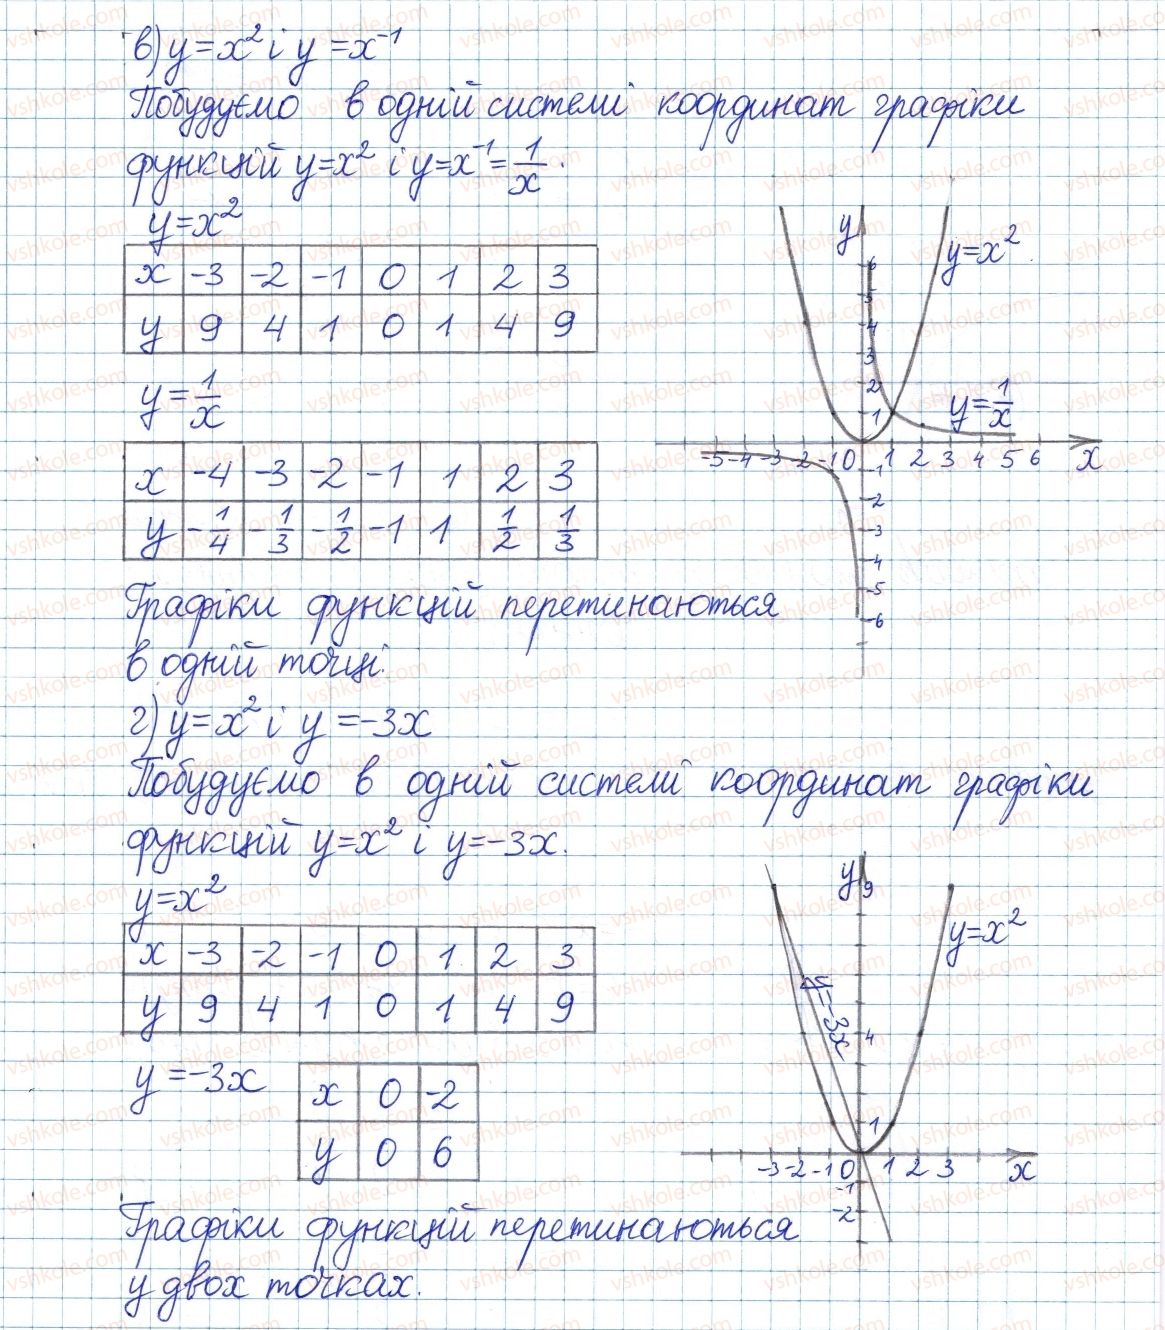 в) y = x² і y = x⁻¹
Побудуємо в одній системі координат графіки
функцій y=x² і y=x⁻¹=1/x.
y=x²
x -3 -2 -1 0 1 2 3
y 9 4 1 0 1 4 9
y=1/x
x -4 -3 -2 -1 1 2 3
y -1/4 -1/3 -1/2 -1 1 1/2 1/3
y
y=x²
6
5
4
3
2
1
y=1/x
-5 -4 -3 -2 -1 0 1 2 3 4 5 6 x
-1
-2
-3
-4
-5
-6
Графіки функцій перетинаються
в одній точці.
г) y=x² і y=-3x
Побудуємо в одній системі координат графіки
функцій y=x² і y=-3x.
y=x²
x -3 -2 -1 0 1 2 3
y 9 4 1 0 1 4 9
y=-3x
x 0 -2
y 0 6
y
9
y=x²
y=-3x
4
1
-3 -2 -1 0 1 2 3 x
-1
-2
Графіки функцій перетинаються
у двох точках.
vshkole.com